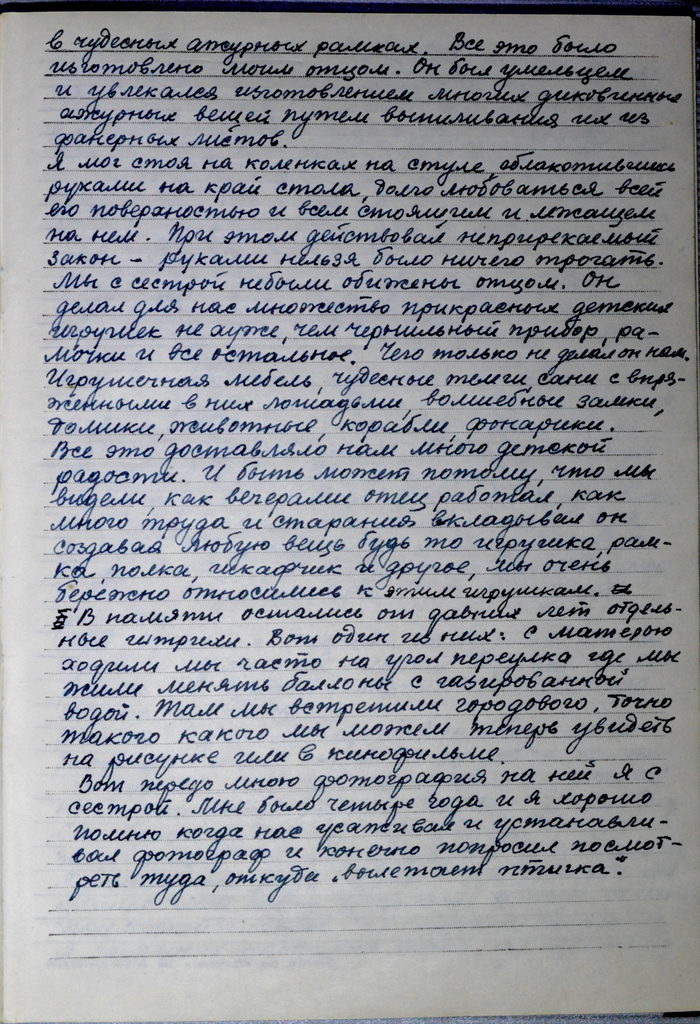 в чудесных ажурных рамках. Все это было
изготовлено моим отцом. Он был умельцем
и увлекался изготовлением многих диковинных
ажурных вещей путем выпиливания их из
фанерных листов.
Я мог стоя на коленках на стуле, облакотившись
руками на край стола, долго любоваться всей
его поверхностью и всем стоящим и лежащем
на нем. При этом действовал непререкаемый
закон – руками нельзя было ничего трогать.
Мы с сестрой небыли обижены отцом. Он
делал для нас множество прикрасных детских
игрушек не хуже, чем чернильный прибор, ра-
мочки и все остальное. Чего только не делал он нам.
Игрушечная мебель, чудесные тележки, сани с впря-
женными в них лошадьми, волшебные замки,
домики, животные, корабли фонарики.
Все это доставляло нам много детской
радости. И быть может потому, что мы
видели, как вечерами отец работал, как
много труда и старания вкладывал он
создавая любую вещь будь то игрушка, рам-
ка, полка, шкафчик и другое, мы очень
бережно относились к этим игрушкам.
В памяти остались от давних лет отдель-
ные штрихи. Вот один из них: с матерью
ходили мы часто на угол переулка где мы
жили менять баллоны с газированной
водой. Там мы встретили городового, точно
такого какого мы можем теперь увидеть
на рисунке или в кинофильме.
Вот передо мною фотография на ней я с
сестрой. Мне было четыре года и я хорошо
помню когда нас усаживал и устанавли-
вал фотограф и конечно попросил посмот-
реть туда, откуда „вылетает птичка".